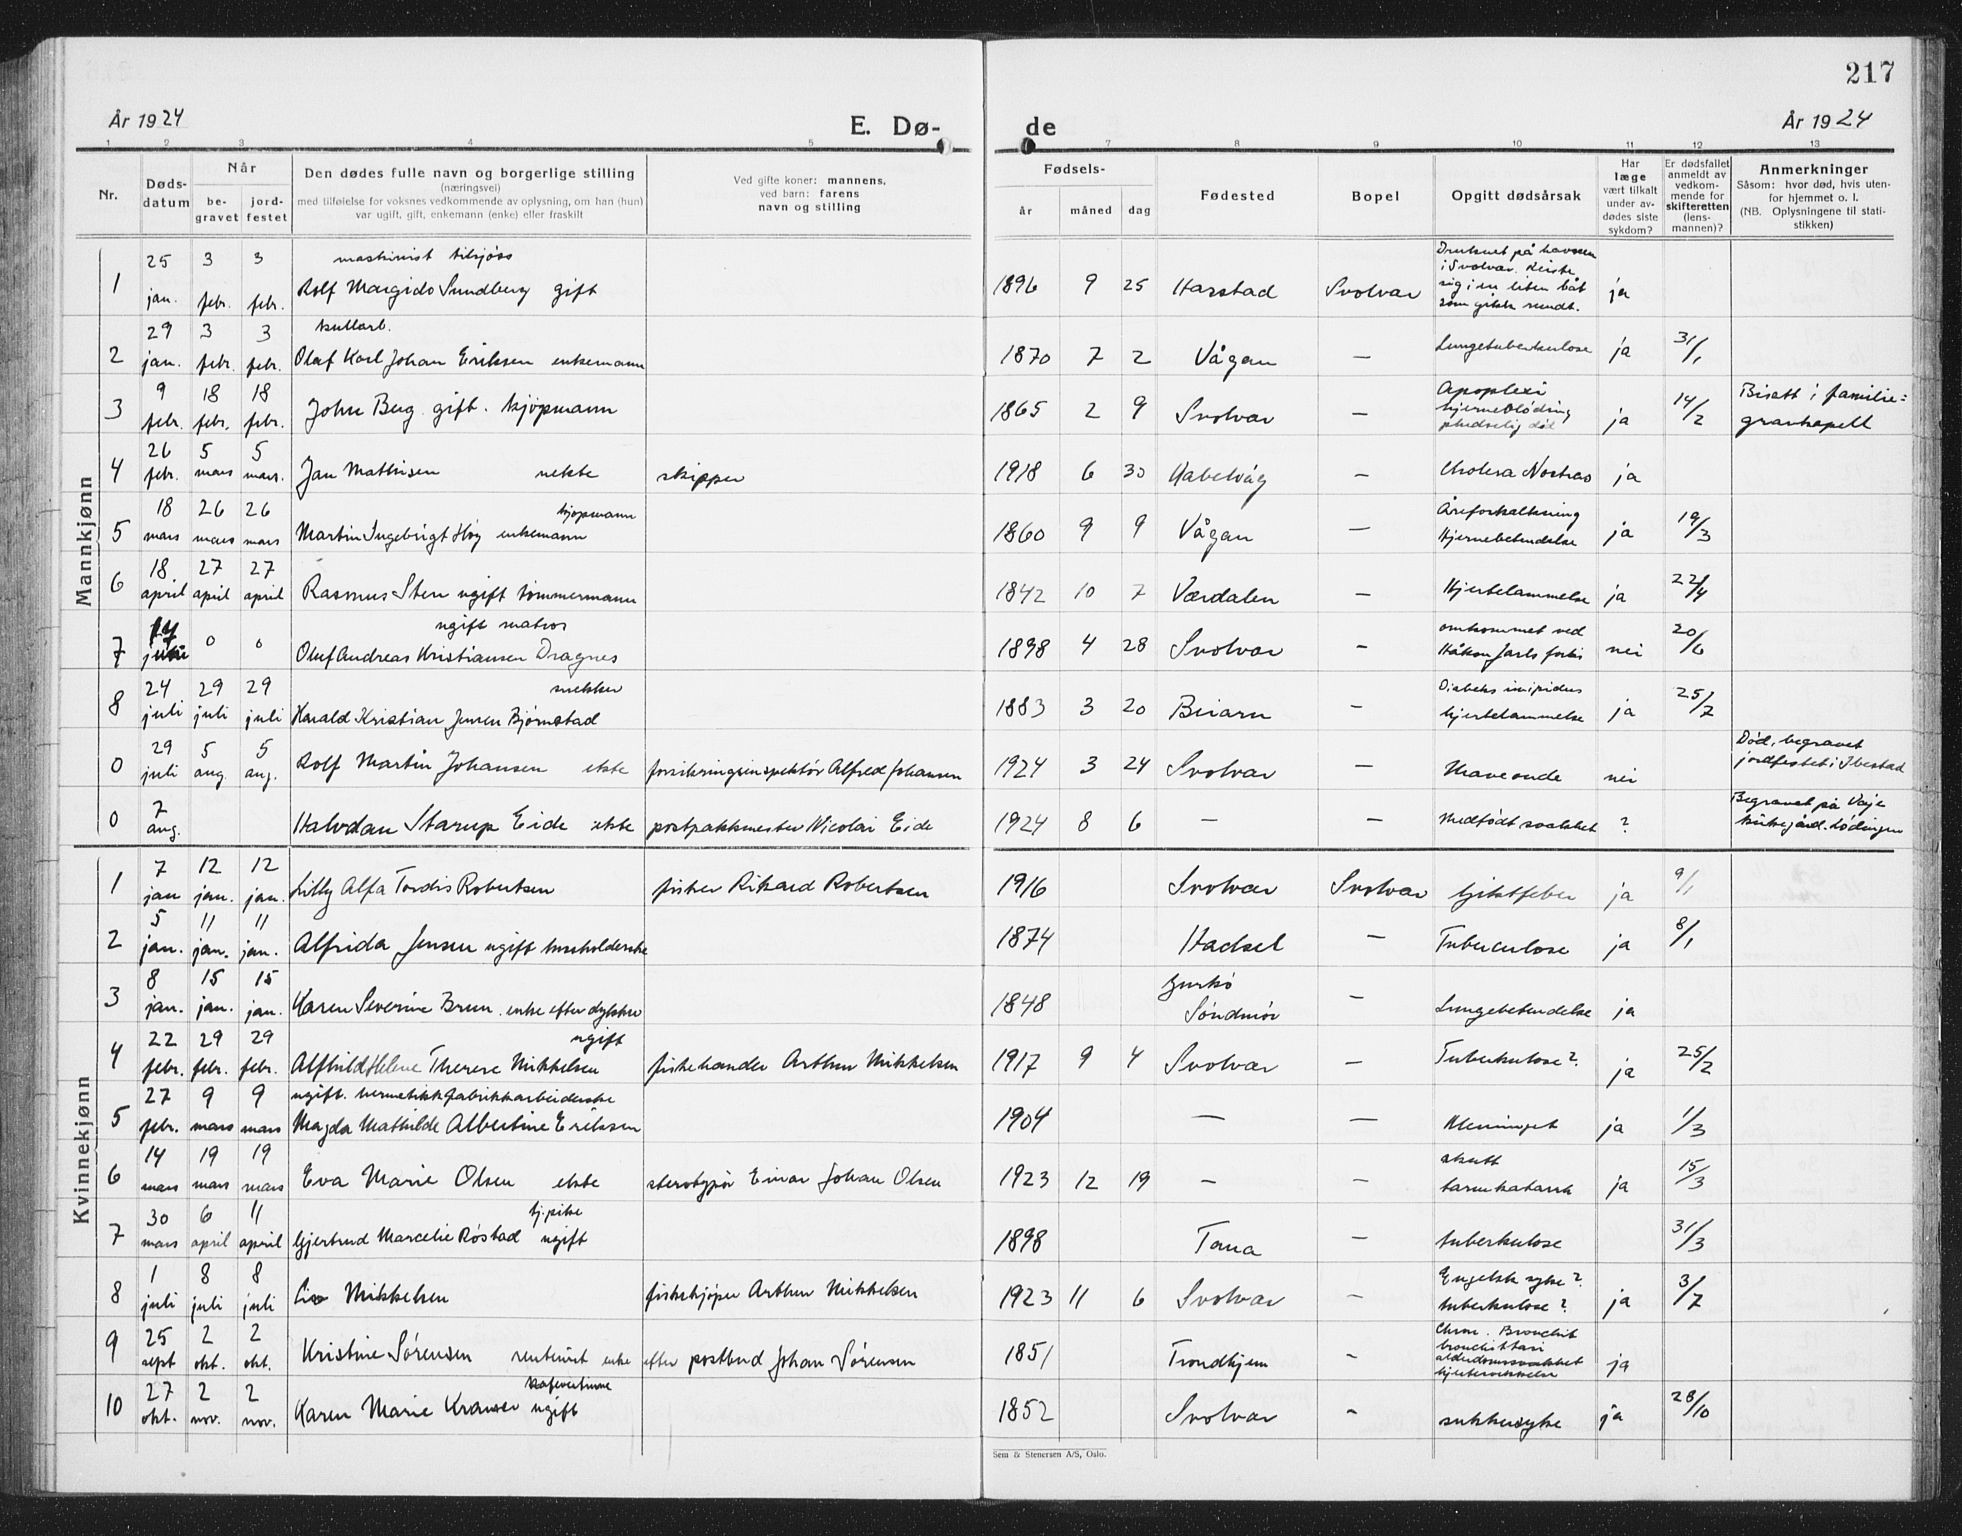 217
År 1924
E. Dø-
de
År 1924
1 2 3 4 5 7 8 9 10 11 12 13
Nr.
Døds-
datum
Når
be-
gravet
jord-
festet
Den dødes fulle navn og borgerlige stilling
(næringsvei)
med tilføielse for voksnes vedkommende av oplysning, om han (hun)
var ugift, gift, enkemann (enke) eller fraskilt
Ved gifte koner: mannens,
ved barn: farens
navn og stilling
Fødsels-
år måned dag
Fødested
Bopel
Opgitt dødsårsak
Har
læge
vært tilkalt
under av-
dødes siste
sykdom?
Er dødsfallet
anmeldt av
vedkom-
mende for
skifteretten
(lens-
mannen)?
Anmerkninger
Såsom: hvor død, hvis uten-
for hjemmet o. l.
(NB. Oplysningene til stati-
stikken)
Mannkjønn
1 25 jan. 3 febr. 3 febr. maskinist tilsjøss
Rolf Margido Sundberg gift 1896 9 25 Harstad Svolvær Druknet på havnen
i Svolvær. Reiste
sig i en liten båt
som gikk rundt. ja
2 29 jan. 3 febr. 3 febr. kullarb.
Olaf Karl Johan Eriksen enkemann 1870 7 2 Vågan — Lungetuberkulose ja 31/1
3 9 febr. 18 febr. 18 febr. John Berg gift. kjøpmann 1865 2 9 Svolvær — Apoplexi
hjerneblødning
pludselig død ja 14/2 Bisatt i familie=
gravkapell
4 26 febr. 5 mars 5 mars. Jan Mathisen ekte skipper 1918 6 30 Kabelvåg — Cholera Nostras ja
5 18 mars 26 mars 26 mars kjøpmann
Martin Ingebrigt Høy enkemann 1860 9 9 Vågan — Åreforkalkning
Hjernebetendelse ja 19/3
6 18. april 27 april 27 april Rasmus Sten ugift tømmermann 1842 10 7 Værdalen — Hjertelammelse ja 22/4
7 17 juni 0 0 ugift matros
Oluf Andreas Kristiansen Dragnes 1898 4 28 Svolvær — omkommet ved
Håkon Jarls forlis nei 20/6
8 24 juli 29 juli 29 juli snekker
Harald Kristian Jensen Bjørnstad 1883 3 20 Beiarn — Diabetes insipidus
hjertelammelse ja 25/7
0 29 juli 5 aug. 5 aug. Rolf Martin Johansen ekte forsikringsinspektør Alfred Johansen 1924 3 24 Svolvær — Maveonde nei Død, begravet
jordfestet i Ibestad
0 7 aug. Halvdan Starup Eide ekte postpakkmester Nicolai Eide 1924 8 6 — — Medfødt svakhet ? Begravet på Vaje
kirkegård. Lødingen
Kvinnekjønn
1 7 jan 12 jan. 12 jan. Lilly Alfa Tordis Robertsen fisker Rikard Robertsen 1916 Svolvær Svolvær Gjiktfeber ja 9/1
2 5 jan. 11 jan. 11 jan. Alfrida Jensen ugift husholderske 1874 Hadsel — Tuberculose ja 8/1
3 8 jan. 15 jan. 15 jan. Karen Severine Brun. enke efter dykker 1848 Gurskø
Søndmør — Lungebetendelse ja
4 22 febr. 29 febr. 29 febr. ugift
Alfhild Helene Therese Mikkelsen fiskehandler Arthur Mikkelsen 1917 9 4 Svolvær — Tuberkulose? ja 25/2
5 27 febr. 9 mars 9 mars ugift. hermetikkfabrikkarbeiderske
Magda Mathilde Albertine Eriksen 1904 — — Meninget ja 1/3
6 14 mars 19 mars 19 mars Eva Marie Olsen ekte sterotypør Einar Johan Olsen 1923 12 19 — — akutt
tarmkatarrh ja 15/3
7 30 mars 6 april 11 april tj.pike
Gjertrud Marcelie Røstad ugift 1898 Tana — tuberkulose 31/3
8 1 juli 8 juli 8 juli Liv Mikkelsen fiskekjøper Arthur Mikkelsen 1923 11 6 Svolvær — Engelsk syke?
tuberkulose? ja 3/7
9 25 sept 2 okt. 2 okt. Kristine Sørensen rentenist enke efter postbud Johan Sørensen 1851 Trondhjem — Chron. Bronchit
alderdomssvakhet
ja
10 27 okt. 2 nov. 2 nov. kafevertinne
Karen Marie Kramer ugift 1852 Svolvær — sukkersyke ja 28/10
Sem & Stenersen A/S, Oslo.